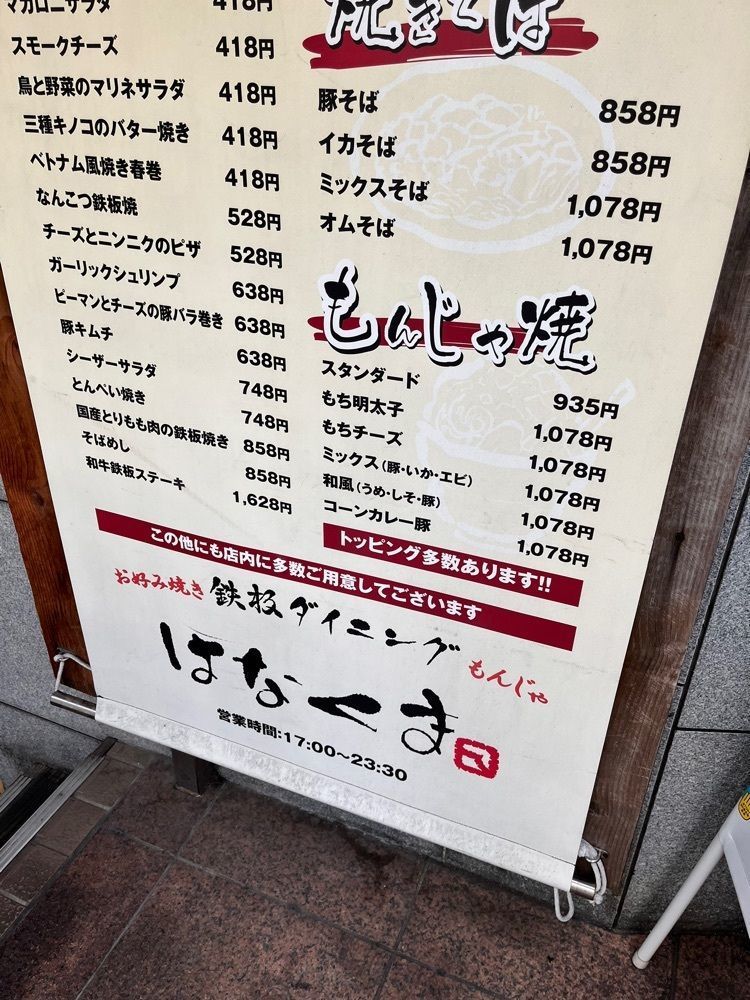 マカロニサラダ 418円
スモークチーズ 418円
鳥と野菜のマリネサラダ 418円
三種キノコのバター焼き 418円
ベトナム風焼き春巻 418円
なんこつ鉄板焼 528円
チーズとニンニクのピザ 528円
ガーリックシュリンプ 638円
ピーマンとチーズの豚バラ巻き 638円
豚キムチ 638円
シーザーサラダ 748円
とんぺい焼き 748円
国産とりもも肉の鉄板焼き 858円
そばめし 858円
和牛鉄板ステーキ 1,628円
焼きそば
豚そば 858円
イカそば 858円
ミックスそば 1,078円
オムそば 1,078円
もんじゃ焼
スタンダード 935円
もち明太子 1,078円
もちチーズ 1,078円
ミックス(豚・いか・エビ) 1,078円
和風(うめ・しそ・豚) 1,078円
コーンカレー豚 1,078円
トッピング多数あります!!
この他にも店内に多数ご用意してございます
お好み焼き 鉄板ダイニング もんじゃ
はなくま
営業時間:17:00〜23:30